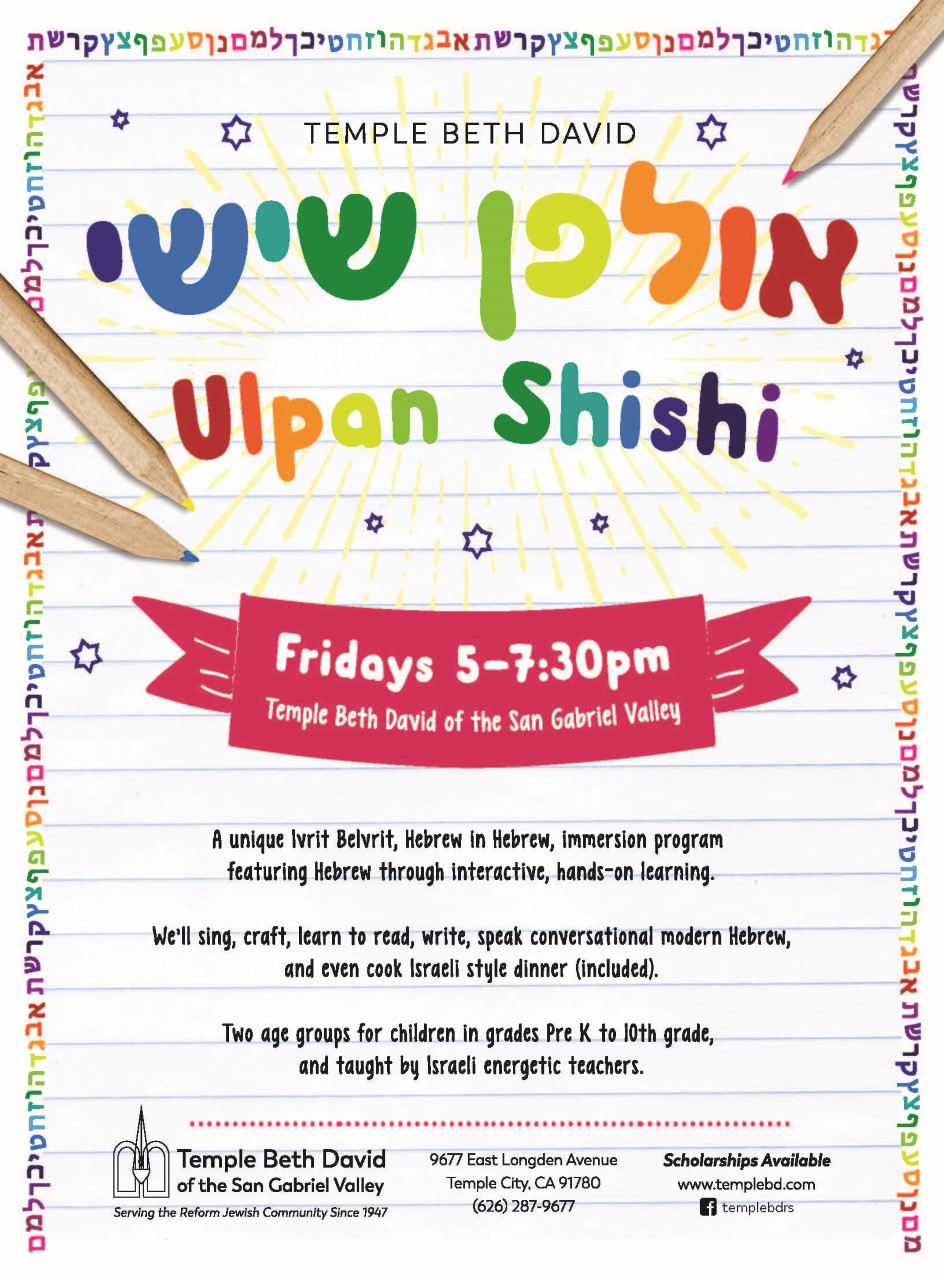 גדהוזחטיכךלמםנןסעפףצץקרשתאבגדהוזחטיכךלמםנןסעפףצץקרשת
TEMPLE BETH DAVID
אולפן שישי
Ulpan Shishi
Fridays 5-7:30pm
Temple Beth David of the San Gabriel Valley
A unique Ivrit BeIvrit, Hebrew in Hebrew, immersion program
featuring Hebrew through interactive, hands-on learning.
We'll sing, craft, learn to read, write, speak conversational modern Hebrew,
and even cook Israeli style dinner (included).
Two age groups for children in grades Pre K to 10th grade,
and taught by Israeli energetic teachers.
Temple Beth David
of the San Gabriel Valley
Serving the Reform Jewish Community Since 1947
9677 East Longden Avenue
Temple City, CA 91780
(626) 287-9677
Scholarships Available
www.templebd.com
templebdrs